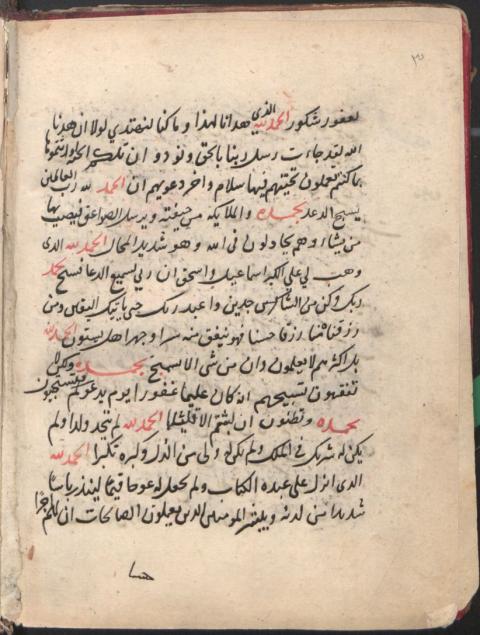 ٣
لغفور شكور الحمد لله الذي هدانا لهذا وما كنا لنهتدي لولا ان هدنا
الله لقد جاءت رسل ربنا بالحق ونودو ان تلكم الجنة اورثتموها
بما كنتم تعملون تحيتهم فيها سلام واخر دعويهم ان الحمد لله رب العالمين
يسبح الرعد بحمده والملايكة من خيفته ويرسل الصواعق فيصيب بها
من يشاء وهم يجادلون في الله وهو شديد المحال الحمد لله الذي
وهب لي على الكبر اسماعيل واسحق ان ربي لسميع الدعا فسبح بحمد
ربك وكن من الساجدين واعبد ربك حتى ياتيك اليقين ومن
رزقناه منا رزقا حسنا فهو ينفق منه سرا وجهرا هل يستون الحمد لله
بل اكثرهم لا يعلمون وان من شي الا يسبح بحمده ولكن لا
تفقهون تسبيحهم انه كان حليما غفورا يوم يدعوكم فتستجيبون
بحمده وتظنون ان لبثتم الا قليلا الحمد لله لم يتخذ ولدا ولم
يكن له شريك في الملك ولم يكن له ولي من الذل وكبره تكبيرا الحمد لله
الذي انزل على عبده الكتاب ولم يجعل له عوجا قيما لينذر باسا
شديدا من لدنه ويبشر المومنين الذين يعملون الصالحات ان لهم اجرا
حسنا